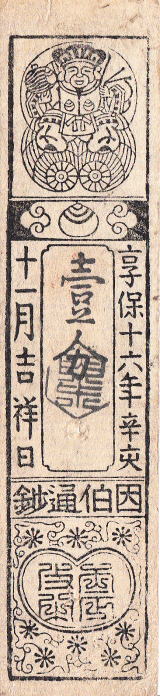 享保十六年辛亥
壹匁
十一月吉祥日
因伯通鈔